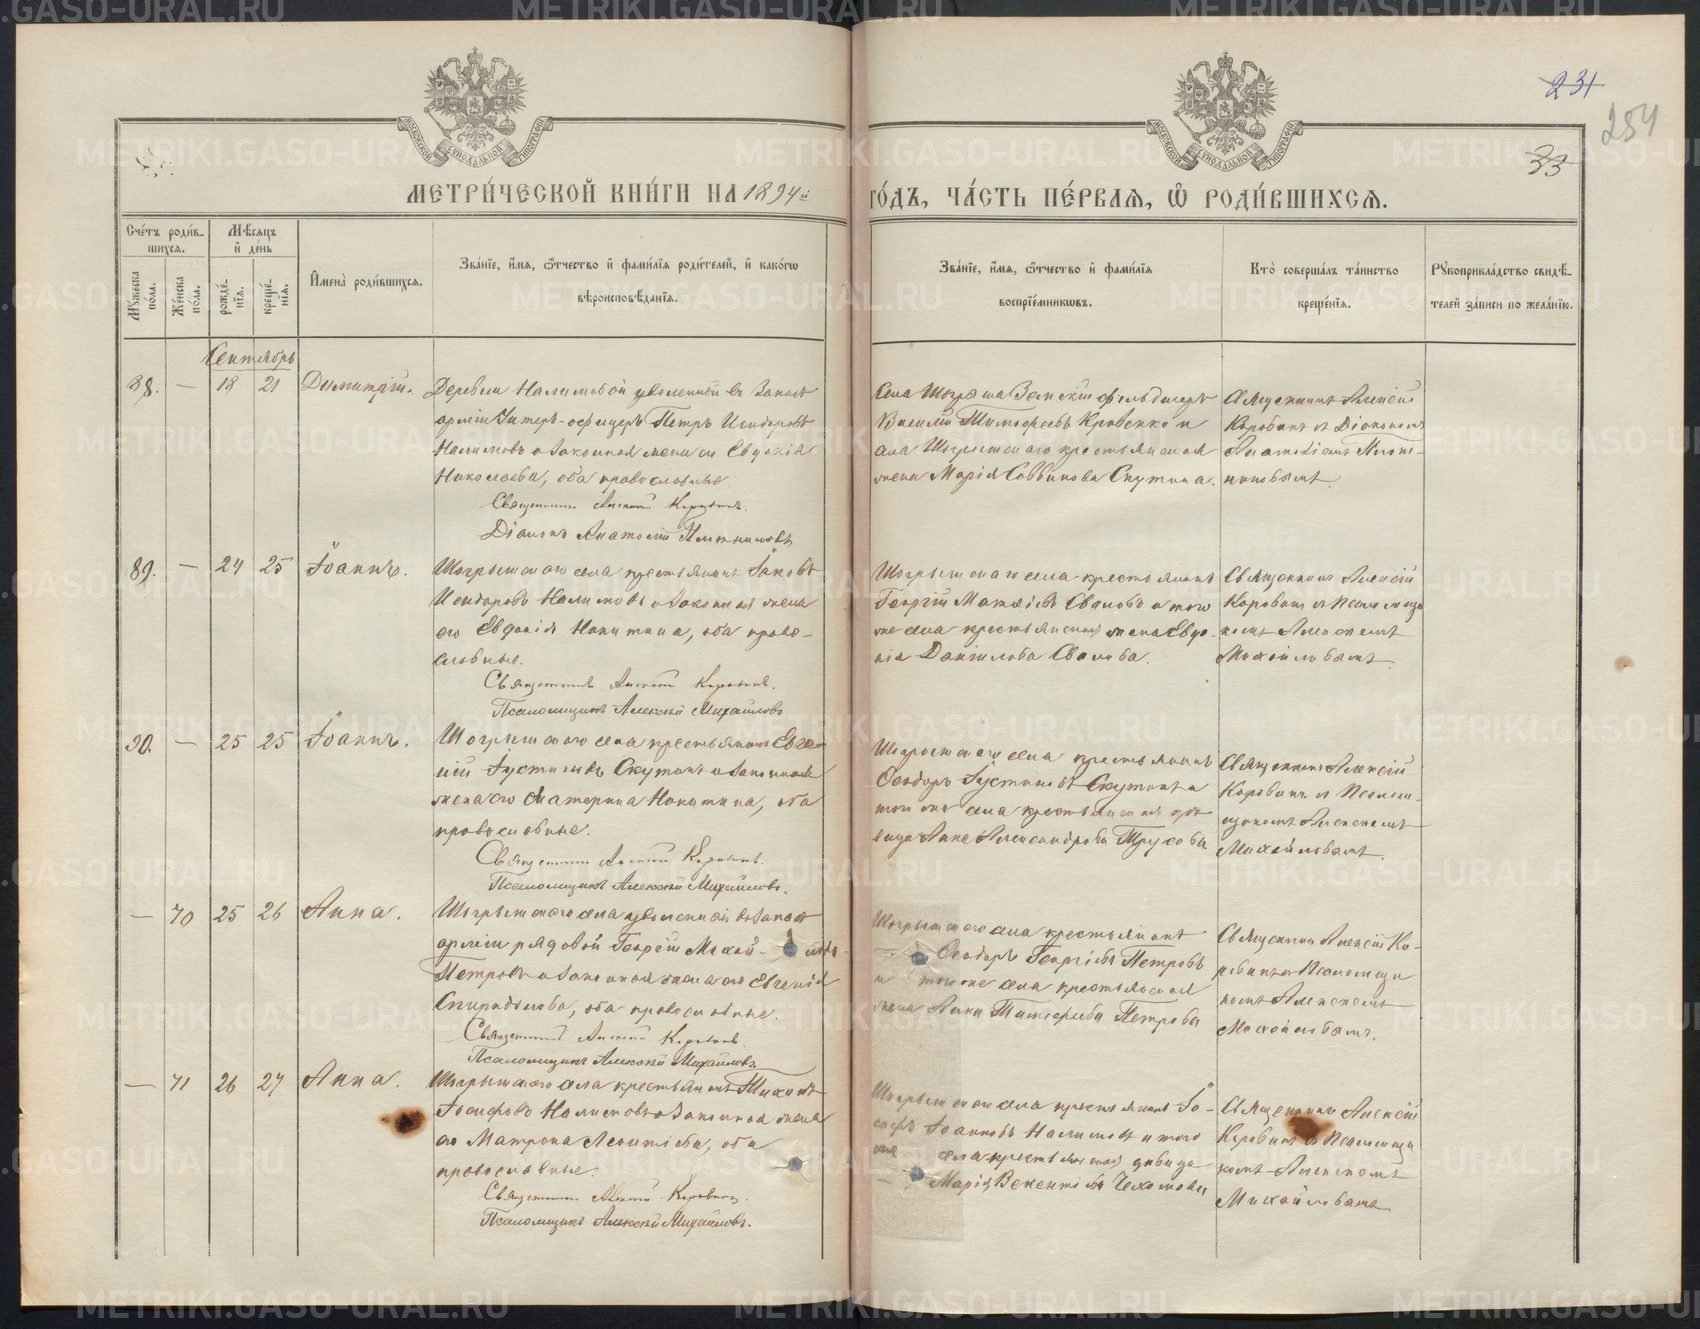 231
254
33
МОСКОВСКОЙ СѴНОДАЛЬНОЙ ТИПОГРАФІИ
МОСКОВСКОЙ СѴНОДАЛЬНОЙ ТИПОГРАФІИ
МЕТРИ́ЧЕСКОЙ КНИ́ГИ НА 1894й
ГО́ДЪ, ЧА́СТЬ ПЕ́РВАѦ, Ѡ҆ РОДИ́ВШИХСѦ.
Сче́тъ роди́в-
шихсѧ.
Мꙋ́жеска по́ла.
Же́нска по́ла.
Мѣ́сѧцъ
и҆ де́нь
рожде́-
нїѧ.
креще́-
нїѧ.
И҆мена̀ роди́вшихсѧ.
Зва́нїе, и҆́мѧ, ѻ҆́тчество и҆ фами́лїѧ роди́телей, и҆ како́гѡ
вѣроисповѣ́данїѧ.
Зва́нїе, и҆́мѧ, ѻ҆́тчество и҆ фами́лїѧ
воспрїе́мникѡвъ.
Кто̀ соверша́лъ та́инство
креще́нїѧ.
Рꙋкоприкла́дство свидѣ́-
телей за́писи по жела́нїю.
Сентябрь
88. — 18 21 Димитрій.
Деревни Налимовой уволенный въ запасъ
арміи Унтеръ-офицеръ Петръ Исидоровъ
Налимовъ и законная жена его Евдокія
Николаева, оба православные.
Священникъ Алексій Коровинъ.
Діаконъ Анатолій
Села Земскій фельдшеръ
Василій Тимофеевъ Кравенко и
крестьянская
жена Марія Саввинова Скутина.
Священникъ Алексій
Коровинъ съ Діакономъ
Анатоліемъ
89. — 24 25 Іоаннъ.
Шогрышскаго села крестьянинъ Іаковъ
Исидоровъ Налимовъ и законная жена
его Евдокія Никитина, оба право-
славные.
Священникъ Алексій Коровинъ.
Псаломщикъ Алексѣй Михайловъ
Шогрышскаго села крестьянинъ
Георгій Матвіевъ Сваловъ и того
же села крестьянская жена Евдо-
кія Даніилова Свалова.
Священникъ Алексій
Коровинъ съ Псаломщи
комъ Алексѣемъ
Михайловымъ.
90. — 25 25 Іоаннъ.
Шогрышскаго села крестьянинъ Евге-
ній Іустиновъ Скутинъ и законная
жена его Екатерина Никитина, оба
православные.
Священникъ Алексій Коровинъ.
Псаломщикъ Алексѣй Михайловъ.
Шогрышскаго села крестьянинъ
Ѳеодоръ Іустиновъ Скутинъ и
того же села крестьянская дѣ-
вица Анна Александрова Трусова.
Священникъ Алексій
Коровинъ съ Псалом-
щикомъ Алексѣемъ
Михайловымъ.
— 70 25 26 Анна.
Шогрышскаго села уволенный въ запасъ
арміи рядовой Георгій Михай-
Петровъ и законная жена его Евгенія
Спиридонова, оба православные.
Священникъ Алексій Коровинъ.
Псаломщикъ Алексѣй Михайловъ.
Шогрышскаго села крестьянинъ
Ѳеодоръ Георгіевъ Петровъ
и того же села крестьянская
жена Анна Тимофеева Петрова
Священникъ Алексій Ко-
ровинъ съ Псаломщи
комъ Алексѣемъ
Михайловымъ.
— 71 26 27 Анна.
Шогрышскаго села крестьянинъ
Іосифовъ Налимовъ и законная жена
его Матрона Леонтіева, оба
православные.
Священникъ Алексій Коровинъ.
Псаломщикъ Алексѣй Михайловъ.
Шогрышскаго села крестьянинъ Іо-
сифъ Іоанновъ Налимовъ и того
же села крестьянская дѣвица
Марія Викентіева Чехомова
Священникъ Алексій
Коровинъ съ Псаломщи
комъ Алексѣемъ
Михайловымъ.
METRIKI.GASO-URAL.RU